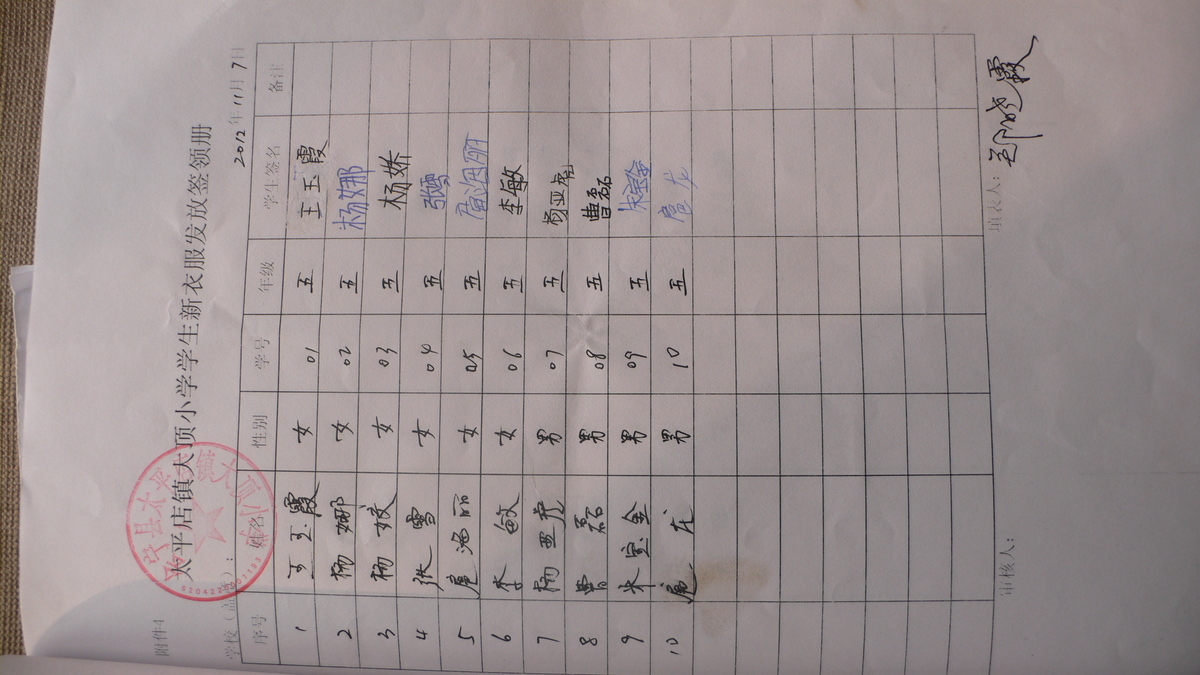 附件4
太平店镇大顶小学学生新衣服发放签领册
学校（盖章）： 2012年11月7日
序号 姓名 性别 学号 年级 学生签名 备注
1 王玉霞 女 01 五 王玉霞
2 杨娜 女 02 五 杨娜
3 杨姣 女 03 五 杨娇
4 张雪 女 04 五 张雪
5 扈海丽 女 05 五 扈海丽
6 李敏 女 06 五 李敏
7 杨亚虎 男 07 五 杨亚虎
8 曹磊 男 08 五 曹磊
9 朱宝金 男 09 五 朱宝金
10 扈龙 男 10 五 扈龙
审核人： 填表人：郑晓霞